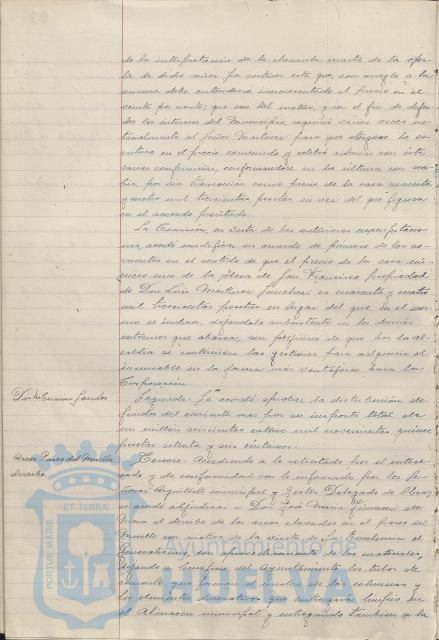 de la interpretación de la cláusula cuarta de la ofer
ta de dicho señor por sostener este que, con arreglo a la
misma debe entenderse incrementado el precio en el
veinte por ciento; que con tal motivo, y con el fin de defen
der los intereses del Municipio, requirió varias veces no
tarialmente al Señor Martínez para que otorgase la es
critura en el precio convenido y celebró además con este
varias conferencias, conformándose en la última con reci
bir, por vía transacción como precio de la casa cuarenta
y cuatro mil trescientas pesetas en vez del que figura
en el acuerdo precitado.
La Comisión, en vista de las anteriores manifestacio
nes, acordó modificar su acuerdo de primero de los co
rrientes en el sentido de que el precio de la casa nú
mero uno de la plaza de San Francisco propiedad
de Don Luis Martínez Sánchez es cuarenta y cuatro
mil trescientas pesetas en lugar del que en el mis
mo se indica, dejándolo subsistente en los demás
extremos que abarca, sin perjuicio de que por la al
caldía se continúen las gestiones para adquirir el
inmueble en la forma más ventajosa para la
Corporación.
Distribución fondos
Segundo. Se acordó aprobar la distribución de
fondos del corriente mes por su importe total de
un millón seiscientas catorce mil novecientas quince
pesetas setenta y seis céntimos.
Arcos Paseo del Muelle
derribo
Tercero. Accediendo a lo solicitado por el intere
sado y de conformidad con lo informado por los se
ñores Arquitecto municipal y Gestor Delegado de Obras,
se acordó adjudicar a Don José María Jiménez de
Mora el derribo de los arcos elevados en el paseo del
Muelle con motivo de la visita de Su Excelencia el
Generalísimo, con el aprovechamiento de sus materiales,
dejando a beneficio del Ayuntamiento los tubos de
cemento que forman el núcleo de las columnas y
los elementos decorativos que entregará limpios en
el Almacén municipal y entregando también a la
ET TERRÆ
PORTUS MARIS
Ayuntamiento de
HUELVA